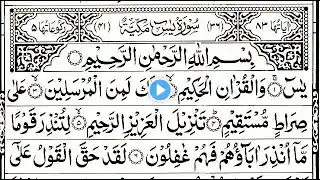 اٰیَاتُهَا ۸۳ (۳۶) سُوْرَةُ یٰسٓ مَكِّیَّةٌ (۴۱) رُكُوْعَاتُهَا ۵
بِسْمِ اللّٰهِ الرَّحْمٰنِ الرَّحِیْمِ
یٰسٓ ۚ وَالْقُرْاٰنِ الْحَكِیْمِ ۙ لَمِنَ الْمُرْسَلِیْنَ ۙ عَلٰی
صِرَاطٍ مُّسْتَقِیْمٍ ؕ تَنْزِیْلَ الْعَزِیْزِ الرَّحِیْمِ ۙ لِتُنْذِرَ قَوْمًا
مَّاۤ اُنْذِرَ اٰبَآؤُهُمْ فَهُمْ غٰفِلُوْنَ لَقَدْ حَقَّ الْقَوْلُ عَلٰۤی